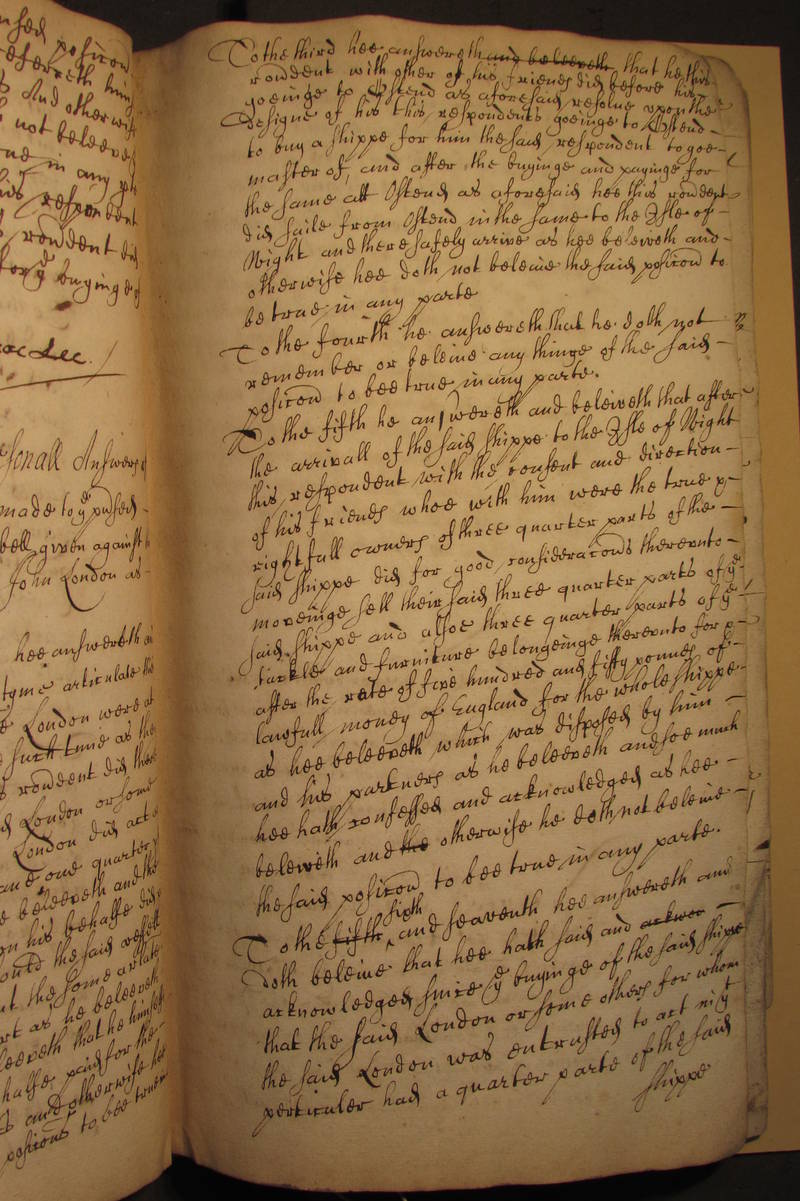 nsed positon
And otherwise
not beleeve
one in any
his respondent
rendent did
for ye buyinge of
sonall Answers
made to ye
bell given against
John London as
hee answereth
tyme articulate
London were
such time as the
rendent did
London or some
London did act
and one quarter
beleeveth and
on his behalfe did
ould the said vessell
the some arlate
art as he beleeveth
leeveth that he himselfe
halfe paid for the
and otherwise hee
positons to bee true in
To the third hee answereth and beleeveth that he this
rendent with other of his friends did before his
goeinge to Ostend as aforesaid resolve upon the
designe of his this respondents goeinge to Ostend
to buy a shippe for him the said respondent to goe
master of, and after the buyinge and payinge for
the same att Ostend as aforesaid hee this rendent
did saile from Ostend in the same to the Isle of
Wight and there safely arrive as hee beleiveth and
otherwise hee doth not beleeive the said positon to
be true in any parte
To the fourth he answereth that he doth not
remember or beleive any thinge of the said
positon to bee true in any parte.
To the fifth he answereth and beleiveth that after
the arrivall of the said shippe to the Isle of Wight
this respondent with the consent and direction
of his friends whoe with him were the true &
rightfull owners of three quarter parts of the
said shippe did for good consideratons thereunto
moveinge sell their said three quarter parts of ye
said shippe and alsoe three quarter parts of ye
tackle and furniture belongeinge thereunto for &
after the rate of five hundred and fifty pounds of
lawfull money of England for the whole shippe
as hee beleeveth which was disposed by him
and his partners as he beleeveth and soe much
hee hath confessed and acknowledged as hee
beleiveth and the otherwise he doth not beleive
the said positon to bee true in any parte.
sixth
To the fifth and seaventh hee answereth and
doth beleive that hee hath said and acknor
acknowledged since ye buyinge of the said shippe
that the said London or some others for whom
the said London was entrusted to act in ys
perticuler had a quarter parte of the said
shippe